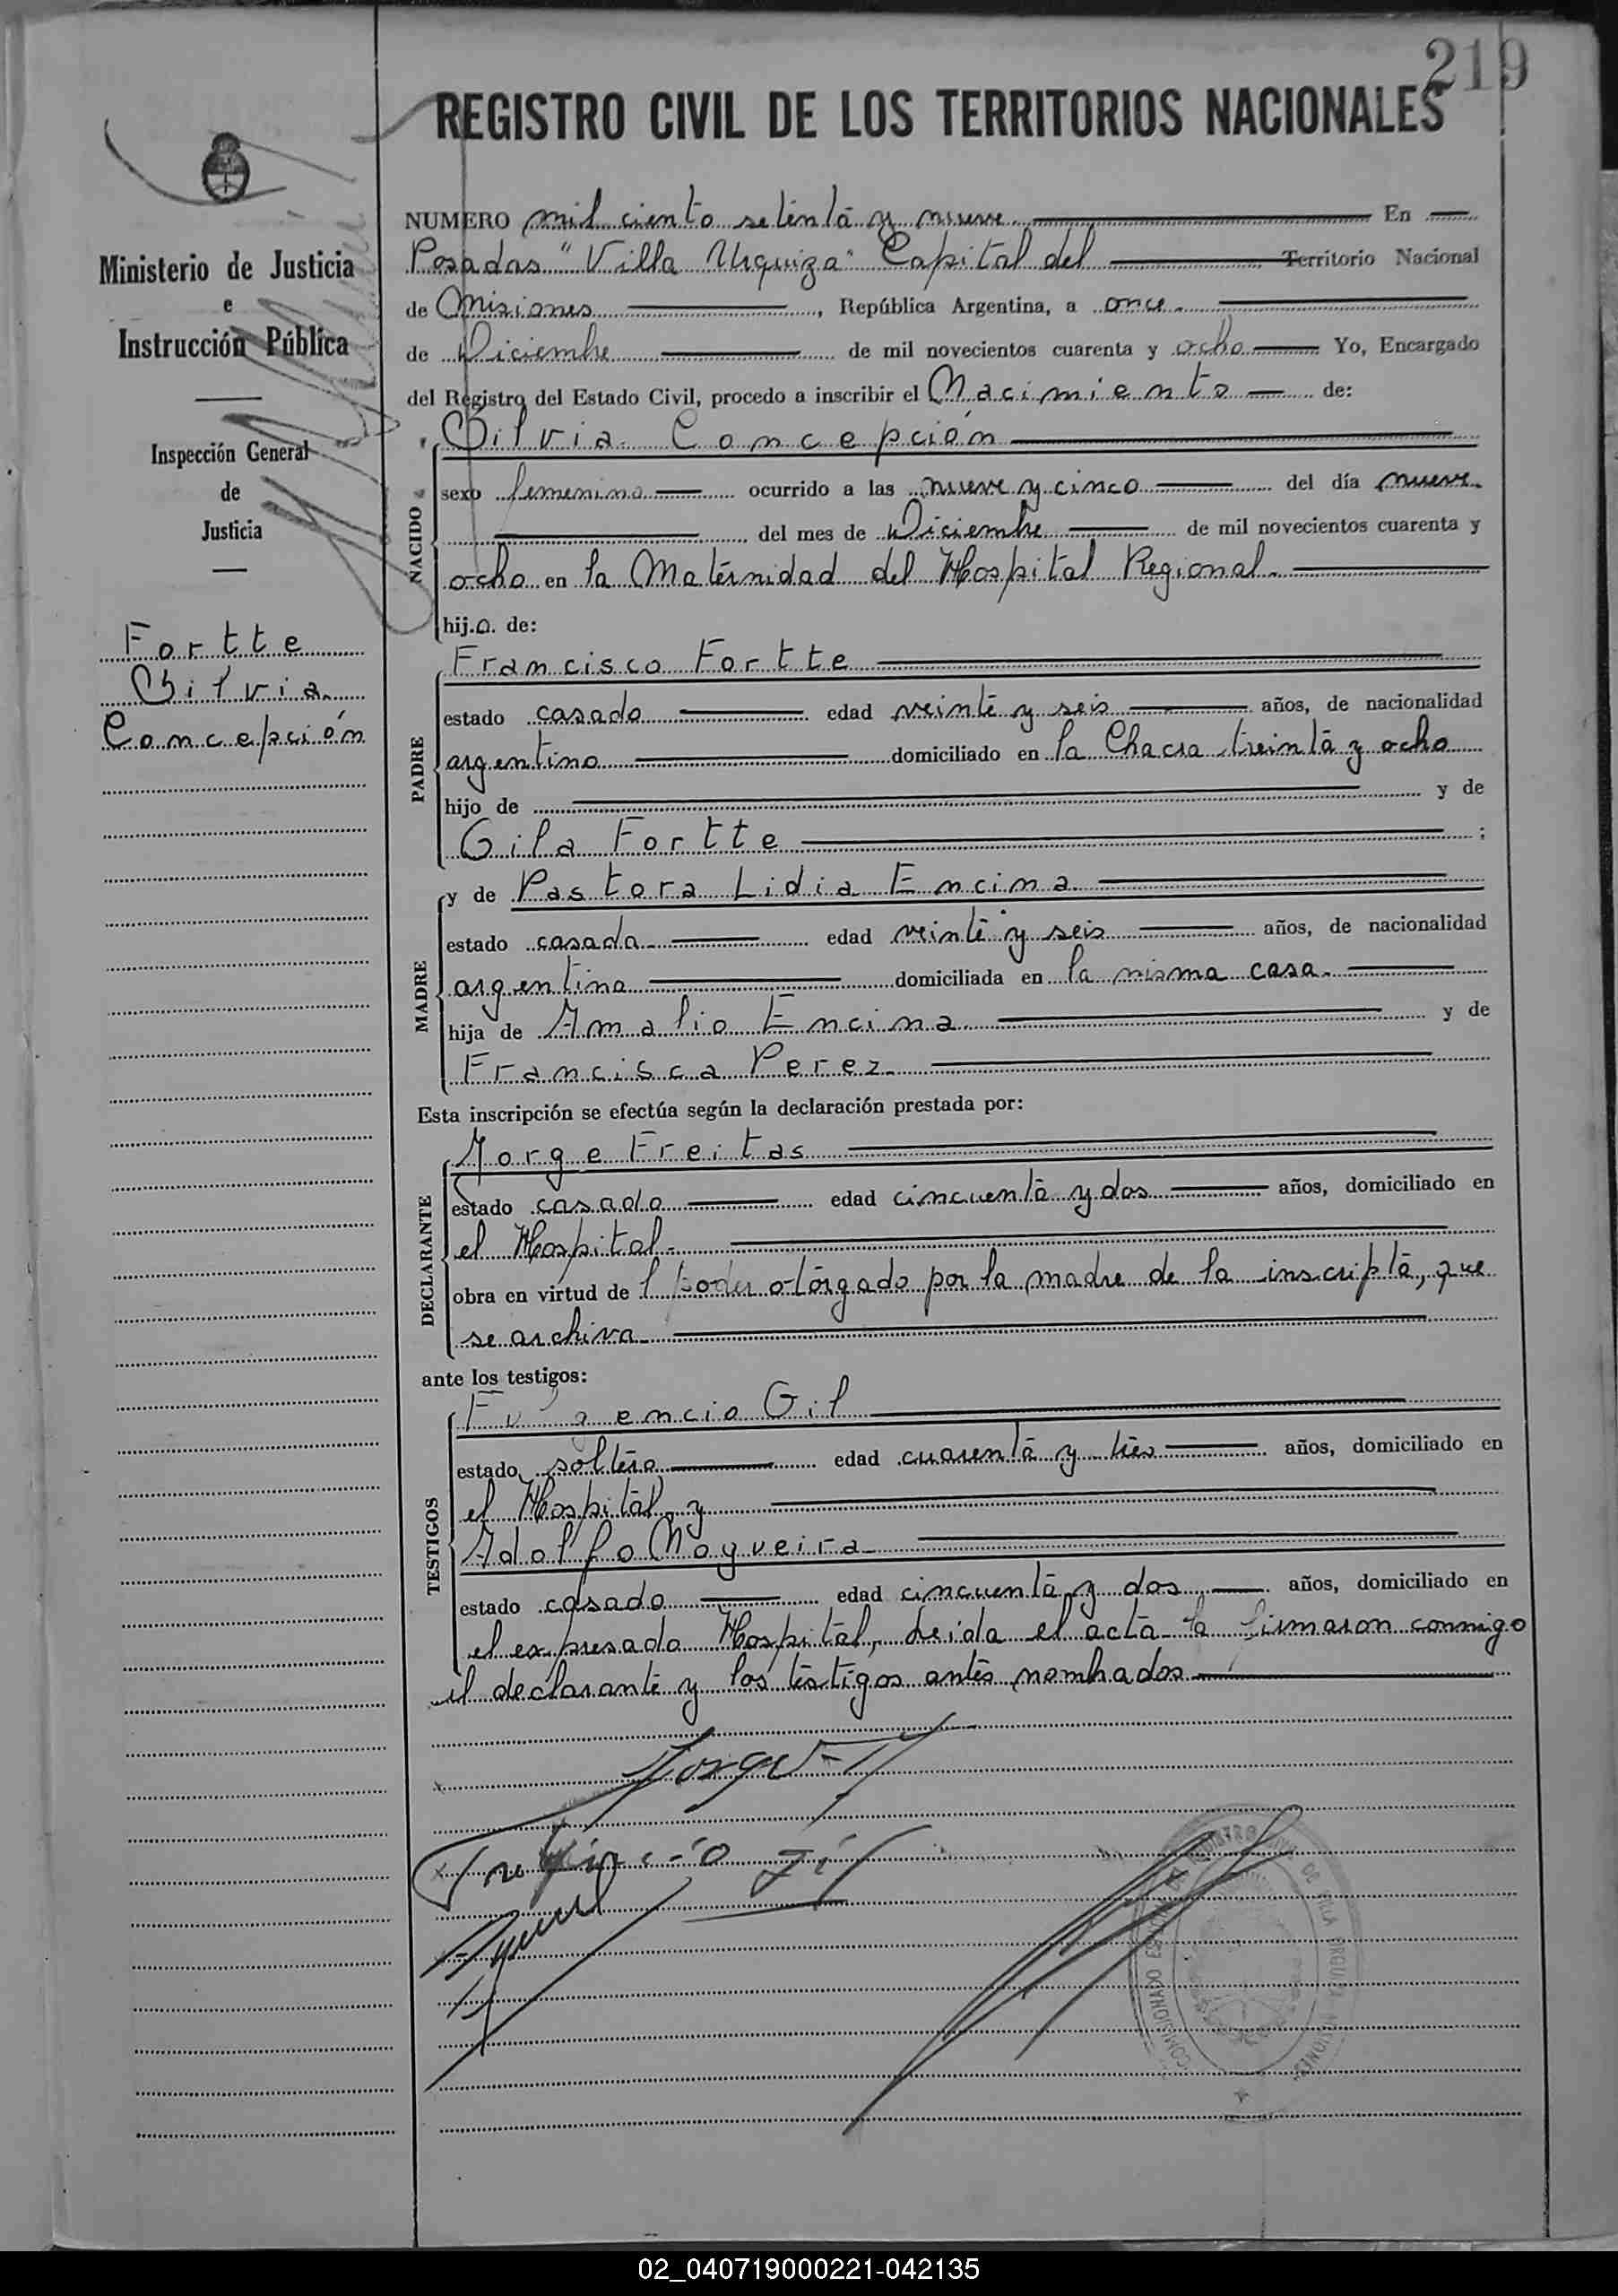 219
REGISTRO CIVIL DE LOS TERRITORIOS NACIONALES
Ministerio de Justicia
e
Instrucción Pública
Inspección General
de
Justicia
Fortte
Silvia
Concepción
NUMERO mil ciento setenta y nueve En
Posadas "Villa Urquiza" Capital del Territorio Nacional
de Misiones, República Argentina, a once
de Diciembre de mil novecientos cuarenta y ocho Yo, Encargado
del Registro del Estado Civil, procedo a inscribir el Nacimiento de:
Silvia Concepción
NACIDO
sexo femenino ocurrido a las nueve y cinco del día nueve
del mes de Diciembre de mil novecientos cuarenta y
ocho en la Maternidad del Hospital Regional.
hij.a. de:
Francisco Fortte
PADRE
estado casado edad veinte y seis años, de nacionalidad
argentino domiciliado en la Chacra treinta y ocho
hijo de y de
Gila Fortte ;
y de Pastora Lidia Encina
MADRE
estado casada edad veinte y seis años, de nacionalidad
argentina domiciliada en la misma casa.
hija de Amalio Encina y de
Francisca Perez.
Esta inscripción se efectúa según la declaración prestada por:
Jorge Freitas
DECLARANTE
estado casado edad cincuenta y dos años, domiciliado en
el Hospital.
obra en virtud de l poder otorgado por la madre de la inscripta, que
se archiva
ante los testigos:
Fulgencio Gil
TESTIGOS
estado soltero edad cuarenta y tres años, domiciliado en
el Hospital y
Adolfo Nogueira
estado casado edad cincuenta y dos años, domiciliado en
el expresado Hospital, Leida el acta la firmaron conmigo
el declarante y los testigos antes nombrados
02_040719000221-042135